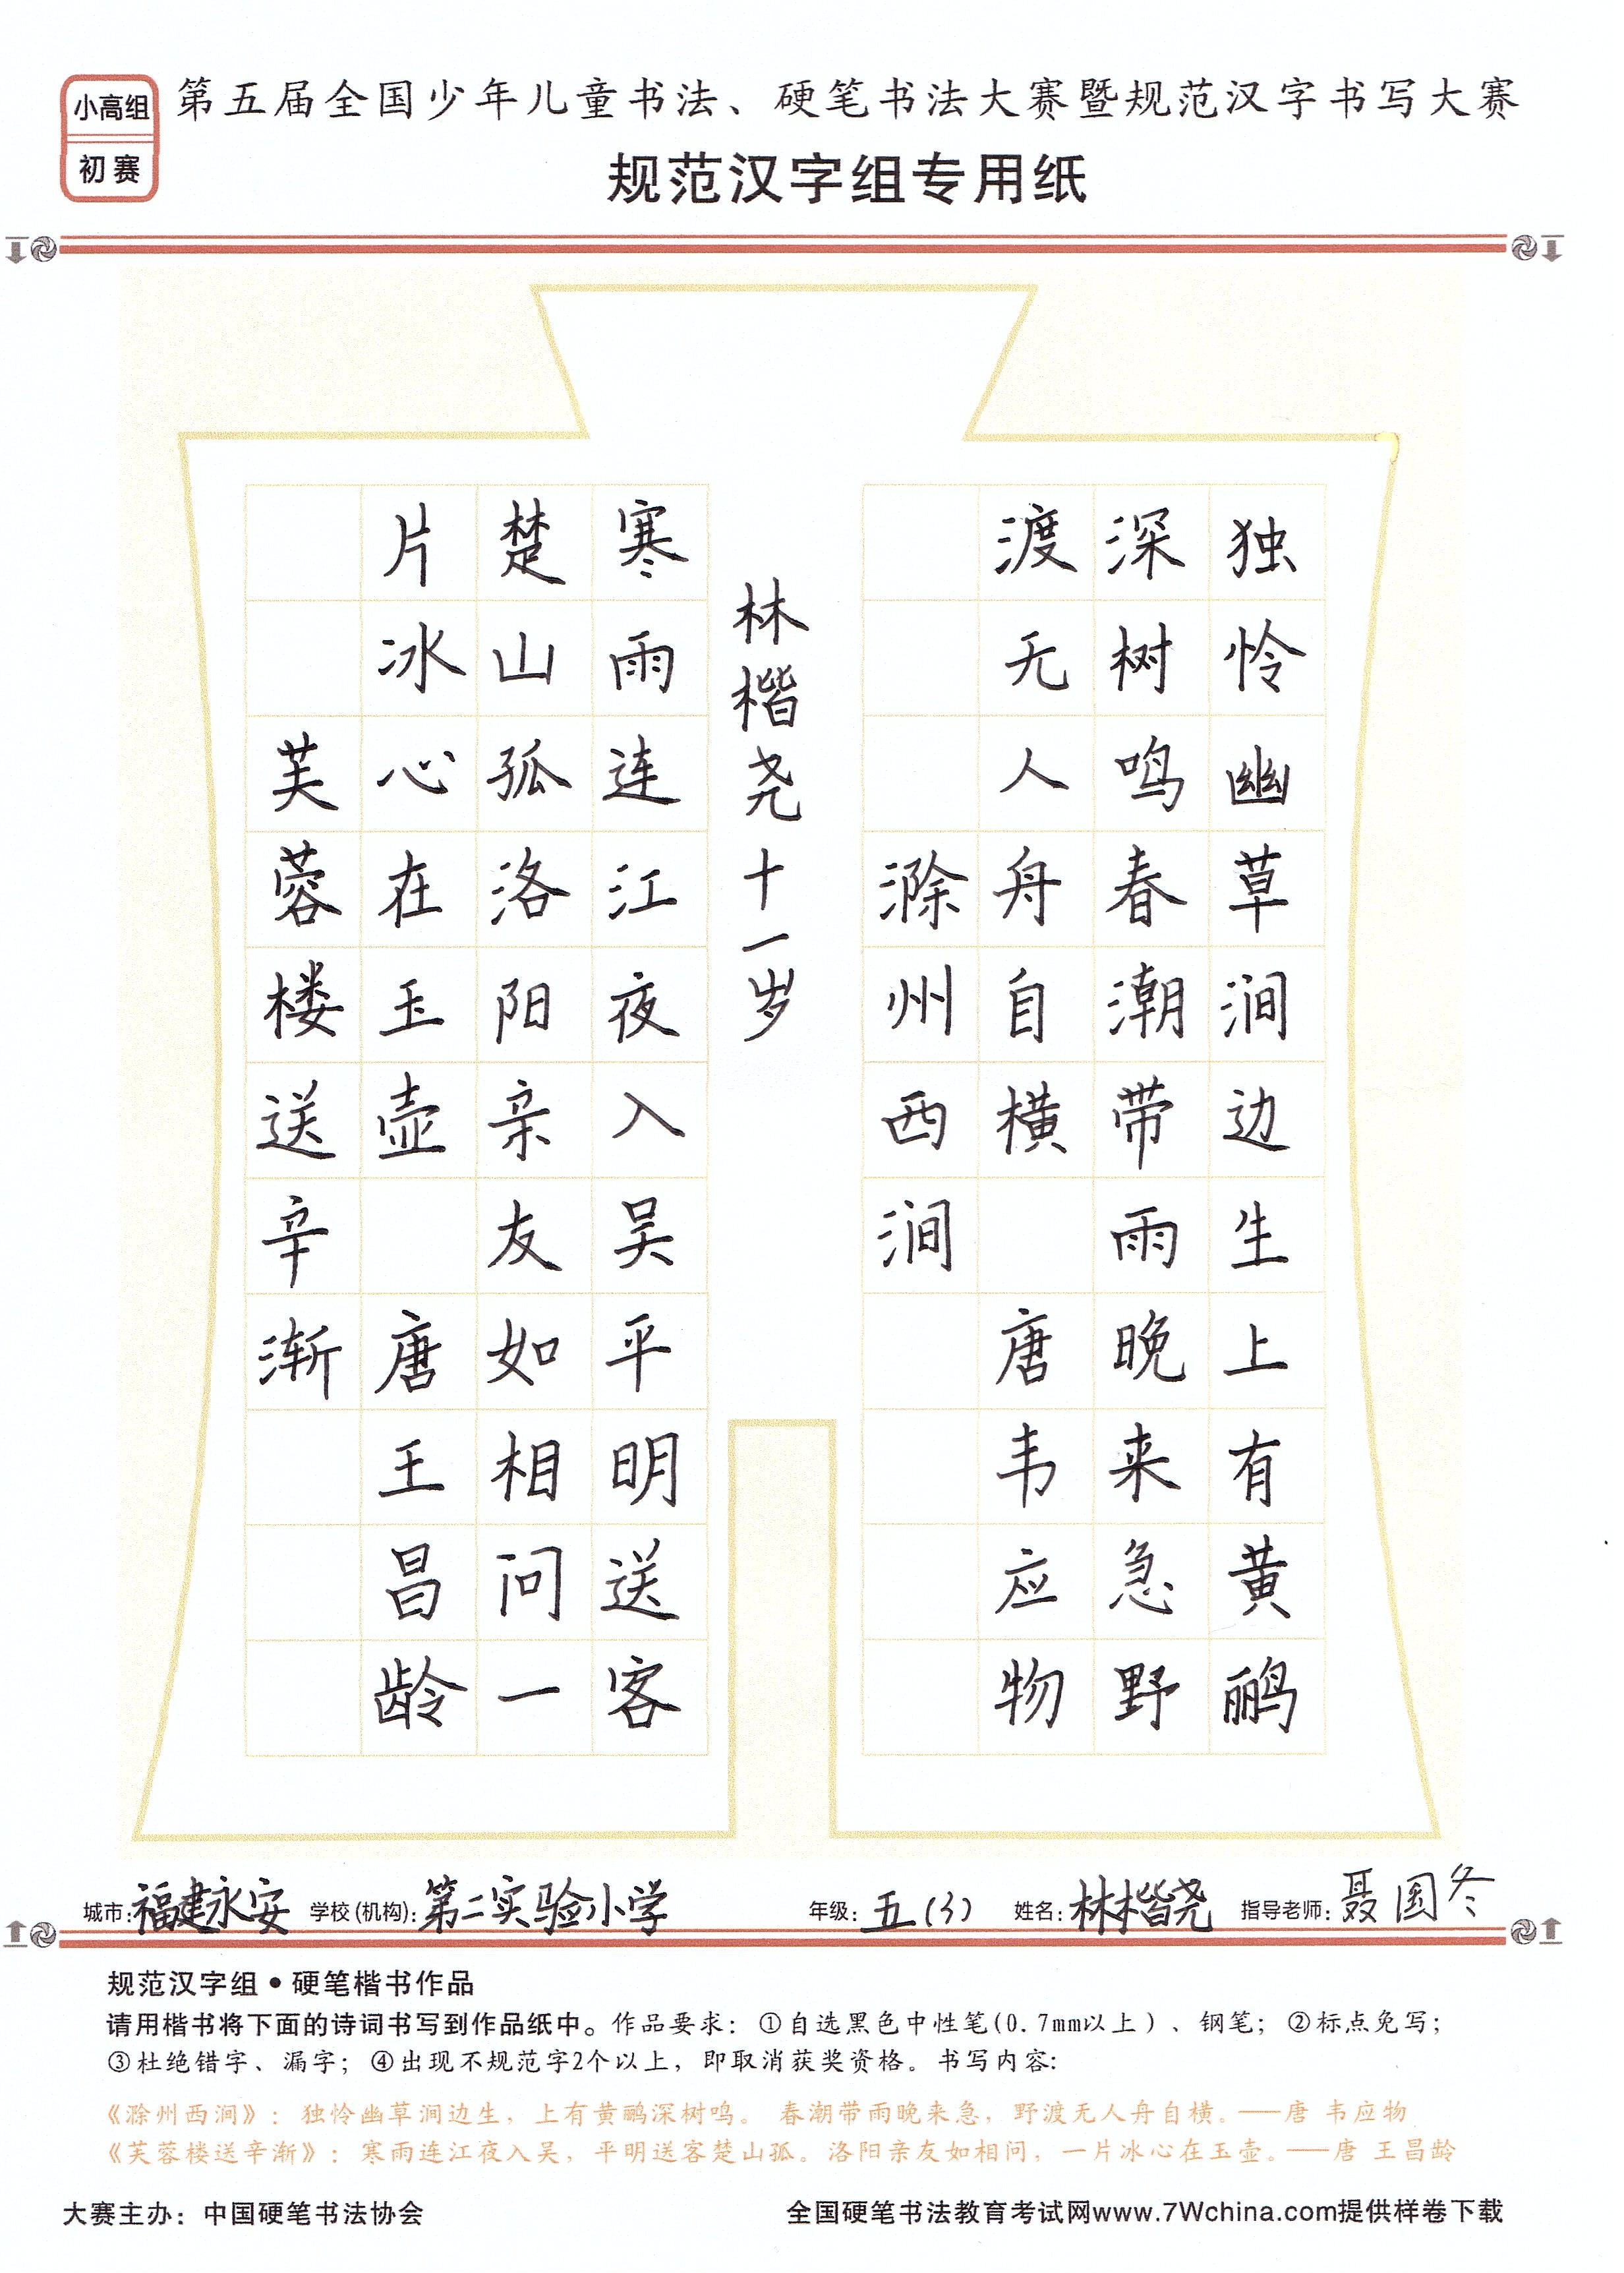 小高组
初赛
第五届全国少年儿童书法、硬笔书法大赛暨规范汉字书写大赛
规范汉字组专用纸
独怜幽草涧边生上有黄鹂
深树鸣春潮带雨晚来急野
渡无人舟自横 唐韦应物
滁州西涧
林楷尧十一岁
寒雨连江夜入吴平明送客
楚山孤洛阳亲友如相问一
片冰心在玉壶 唐王昌龄
芙蓉楼送辛渐
城市:福建永安 学校(机构):第二实验小学 年级:五(3) 姓名:林楷尧 指导老师:聂国冬
规范汉字组•硬笔楷书作品
请用楷书将下面的诗词书写到作品纸中。作品要求：①自选黑色中性笔(0.7mm以上)、钢笔；②标点免写；
③杜绝错字、漏字；④出现不规范字2个以上，即取消获奖资格。书写内容:
《滁州西涧》：独怜幽草涧边生，上有黄鹂深树鸣。 春潮带雨晚来急，野渡无人舟自横。——唐 韦应物
《芙蓉楼送辛渐》：寒雨连江夜入吴，平明送客楚山孤。洛阳亲友如相问，一片冰心在玉壶。——唐 王昌龄
大赛主办：中国硬笔书法协会 全国硬笔书法教育考试网www.7Wchina.com提供样卷下载